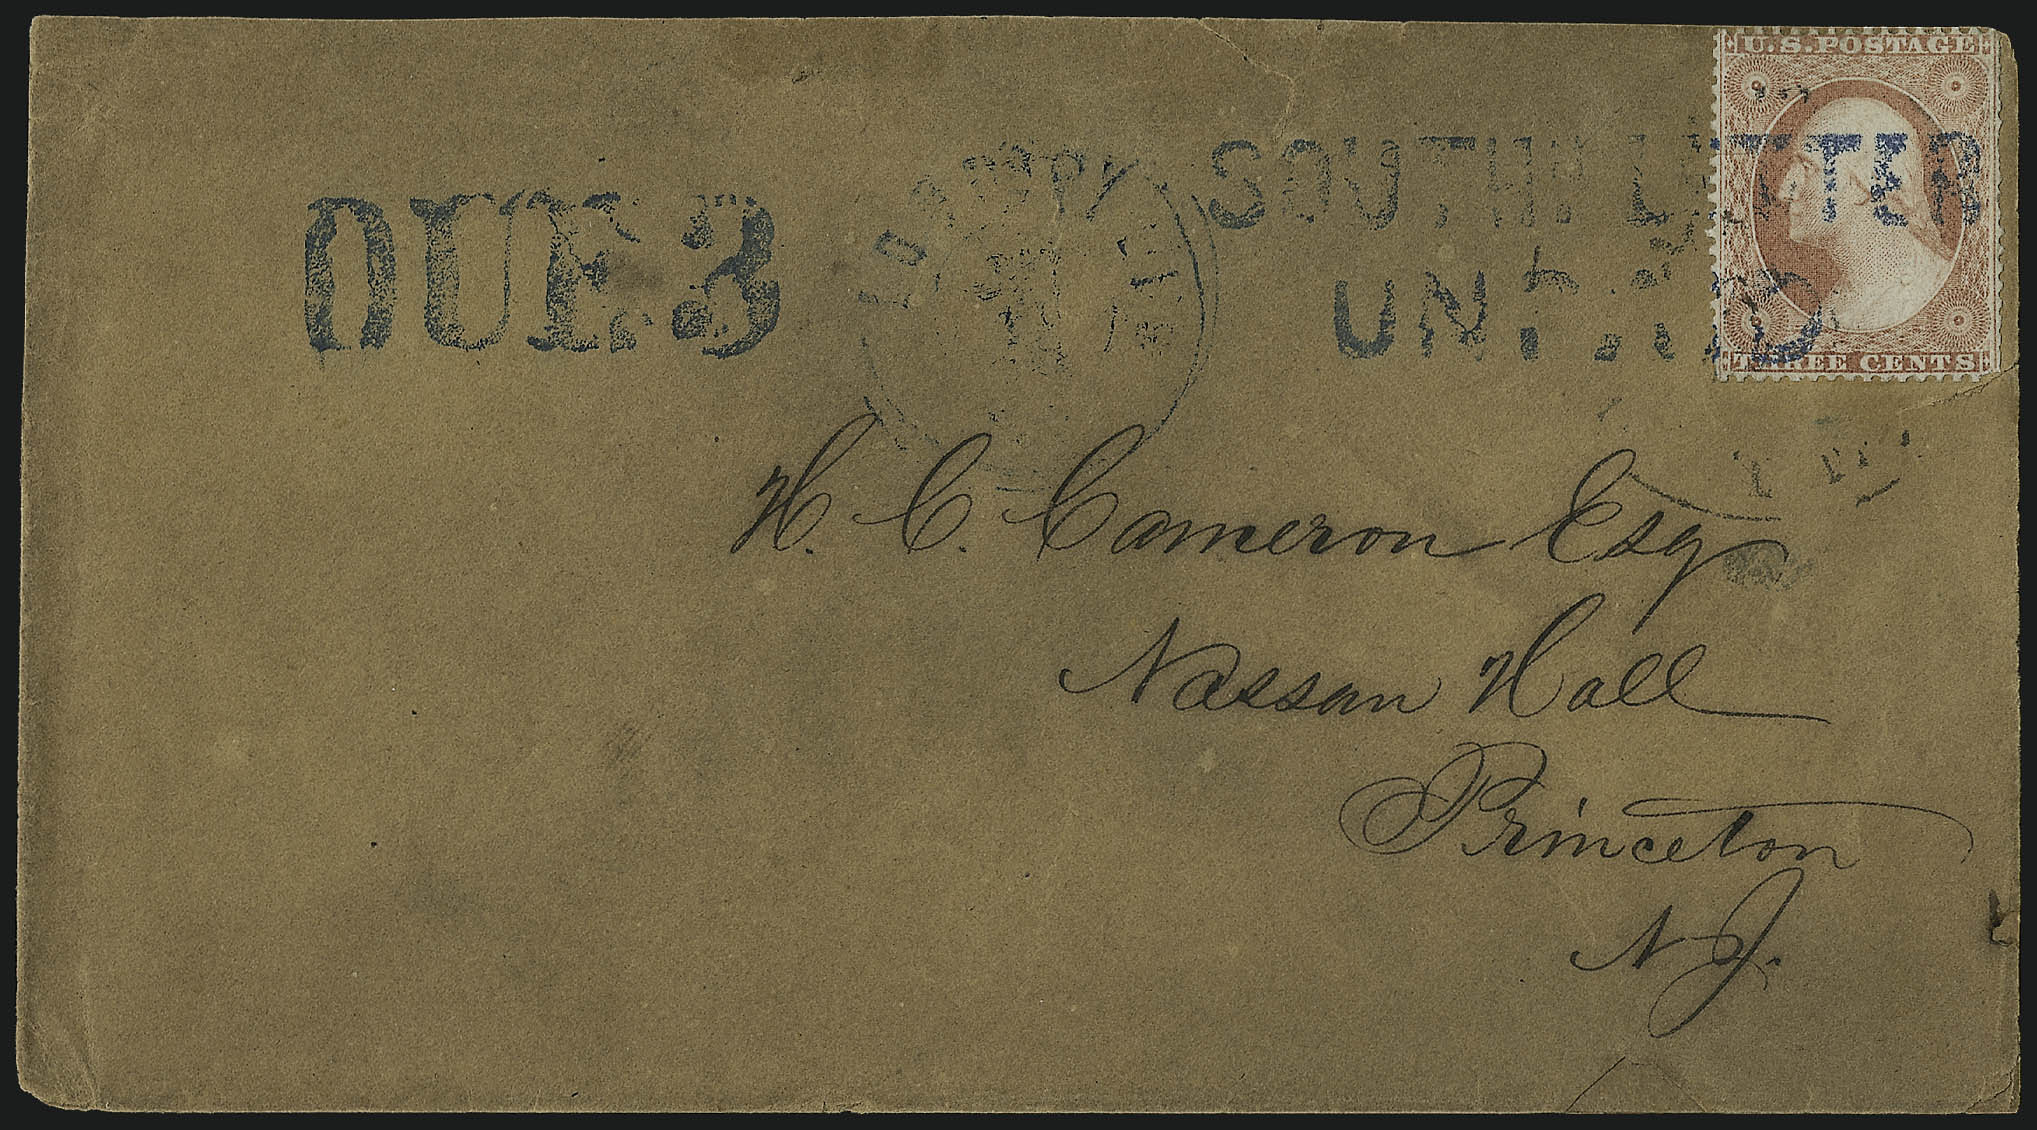 U.S. POSTAGE
SOUTHN LETTER
DUE.3
UNPAID
THREE CENTS
H. C. Cameron Esq
Nassau Hall
Princeton
N J.